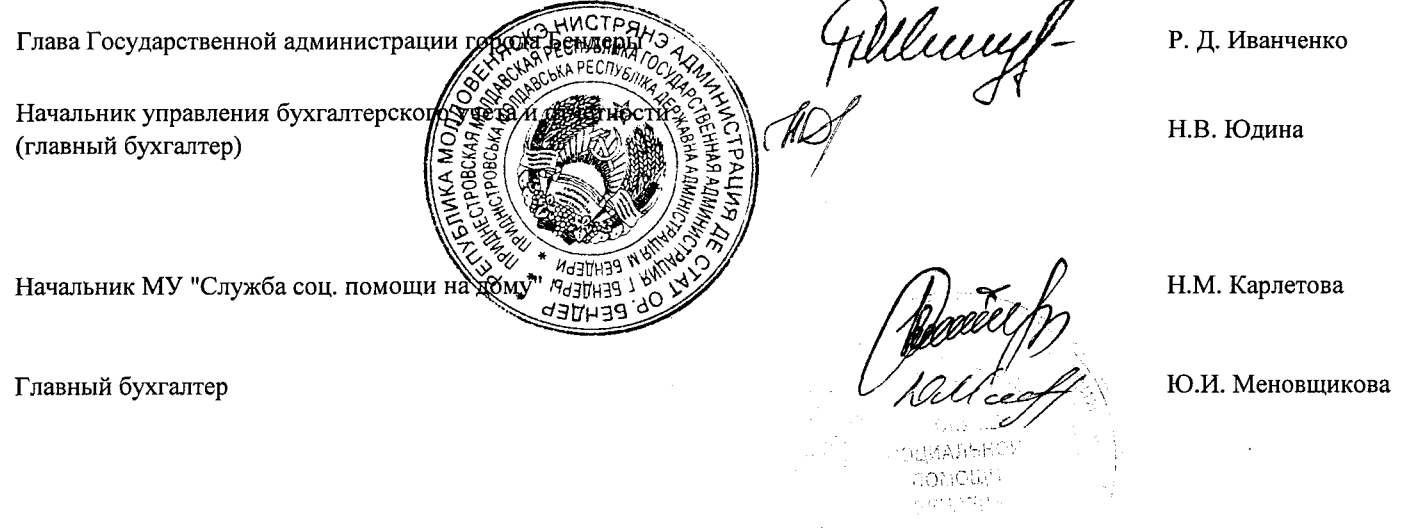 Глава Государственной администрации города Бендеры
Р. Д. Иванченко
Начальник управления бухгалтерского учета и отчетности
(главный бухгалтер)
Н.В. Юдина
Начальник МУ "Служба соц. помощи на дому"
Н.М. Карлетова
Главный бухгалтер
Ю.И. Меновщикова
РЕПУБЛИКА МОЛДОВЕНЯСКЭ НИСТРЯНЭ АДМИНИСТРАЦИЯ ДЕ СТАТ ОР. БЕНДЕР
ПРИДНЕСТРОВСКАЯ МОЛДАВСКАЯ РЕСПУБЛИКА ГОСУДАРСТВЕННАЯ АДМИНИСТРАЦИЯ Г. БЕНДЕРЫ
ПРИДНІСТРОВСЬКА МОЛДАВСЬКА РЕСПУБЛІКА ДЕРЖАВНА АДМІНІСТРАЦІЯ М. БЕНДЕРИ
СОЦИАЛЬНОЙ
ПОМОЩИ